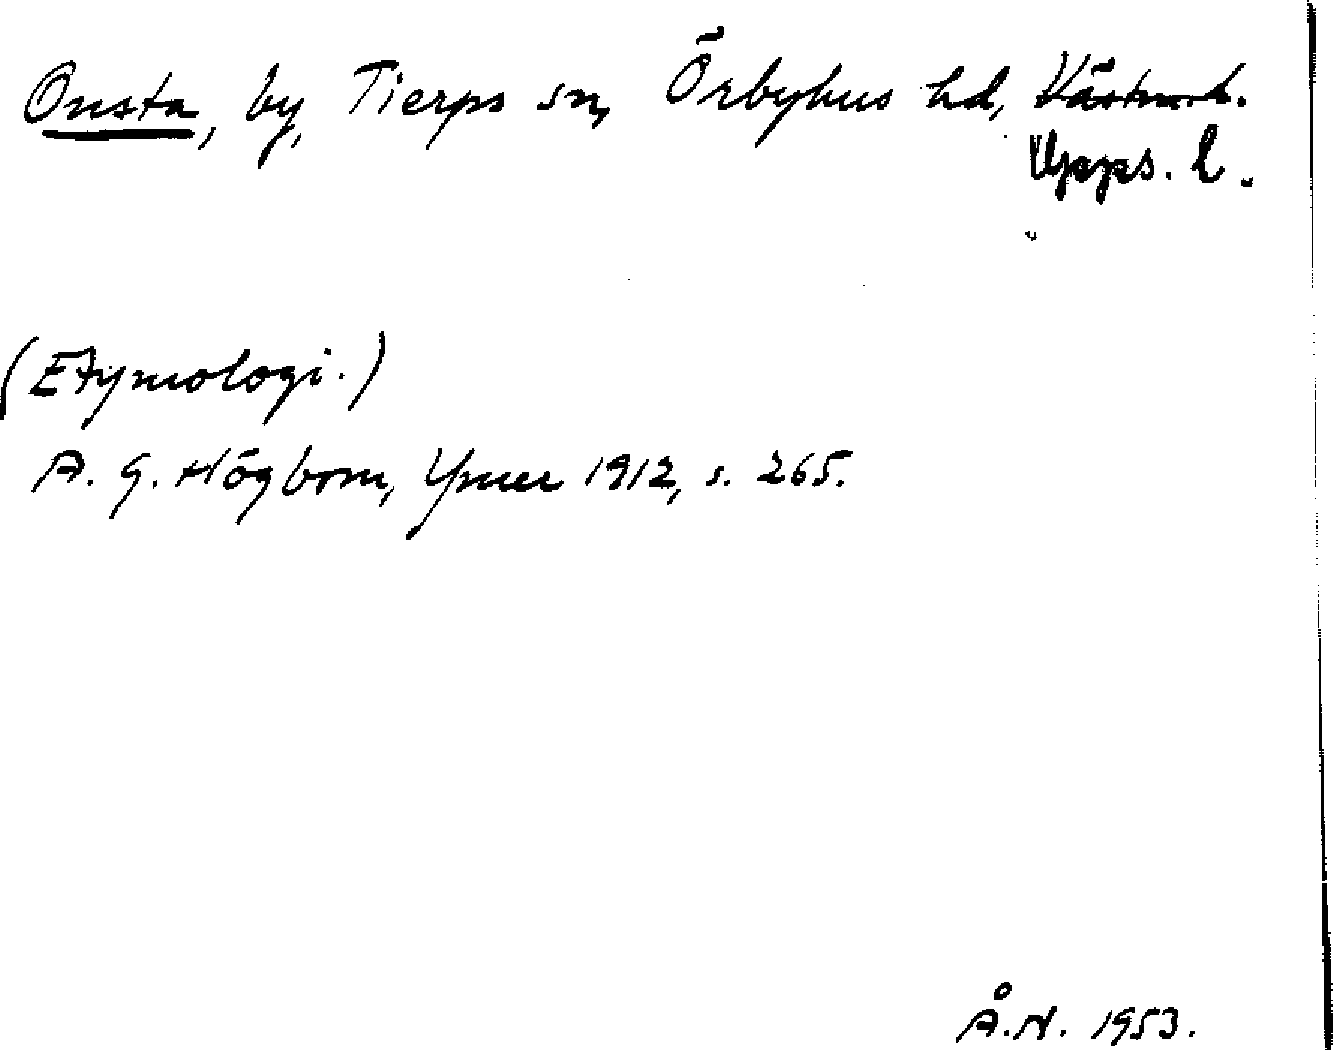 Onsta, by, Tierps sn, Örbyhus hd, Västm. l.
Upps. l.
(Etymologi.)
A. G. Högbom, Ymer 1912, s. 265.
Å.N. 1953.